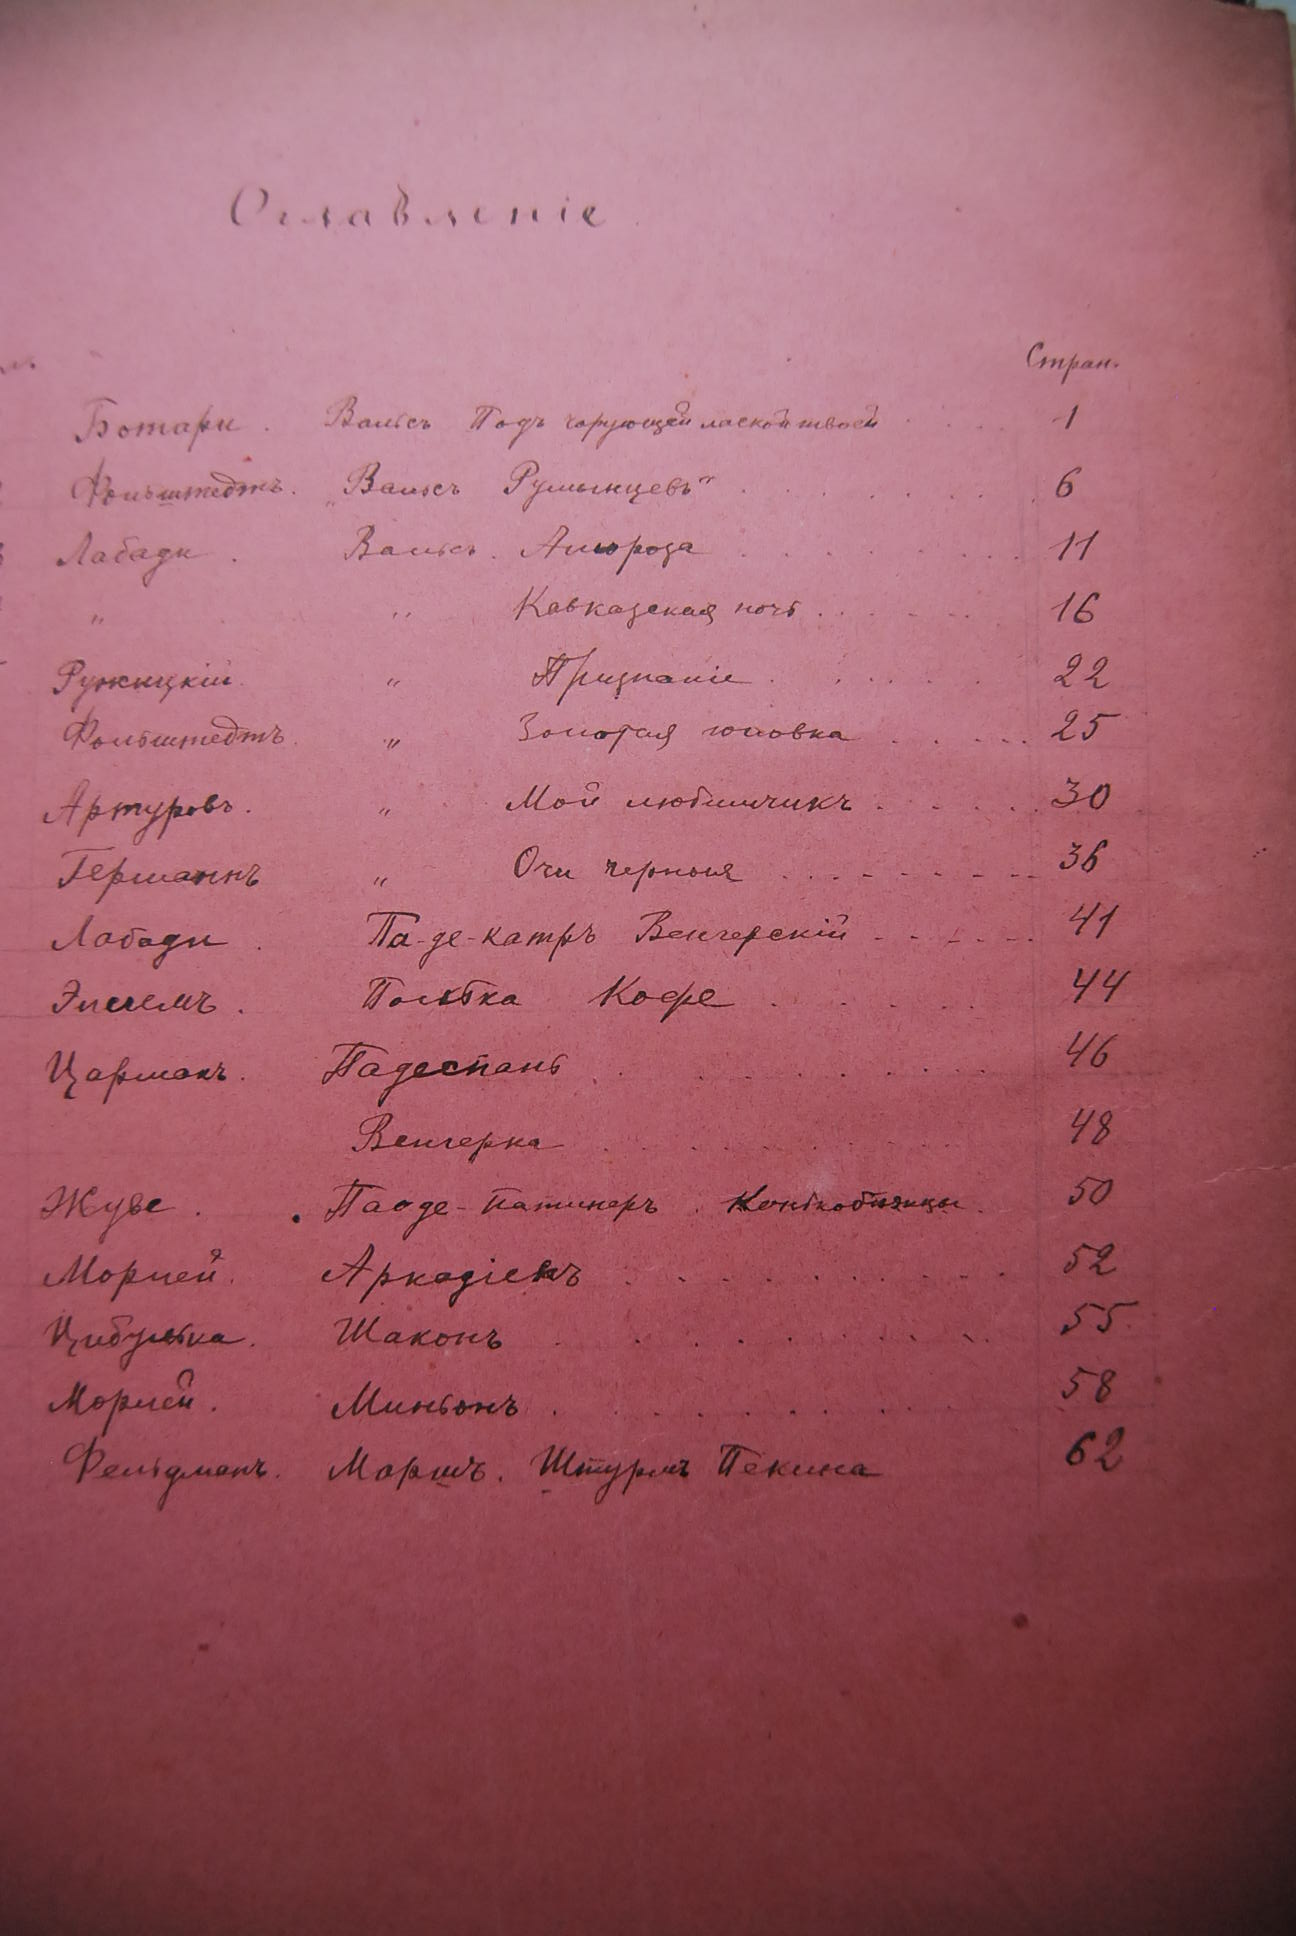 Оглавленіе
Стран.
Ботари. Вальсъ Подъ чарующей лаской твоей 1
Фольштедтъ. „Вальсъ Румынцевъ" 6
Лабади. Вальсъ. Амороза 11
„ „ Кавказская ночь 16
Ружицкій „ Признаніе 22
Фольштедтъ. „ Золотая головка 25
Артуровъ. „ Мой любимчикъ 30
Германнъ „ Очи черныя 36
Лабади. Па-де-катръ Венгерскій 41
Полька Кофе 44
Царманъ. Падеспань 46
Венгерка 48
Жуве. Па де-патинеръ. Конькобѣжцы 50
Морлей. Аркадіенъ 52
Цибулька. Шаконъ 55
Морлей. Миньонъ 58
Фельдманъ. Маршъ. Штурмъ Пекина 62